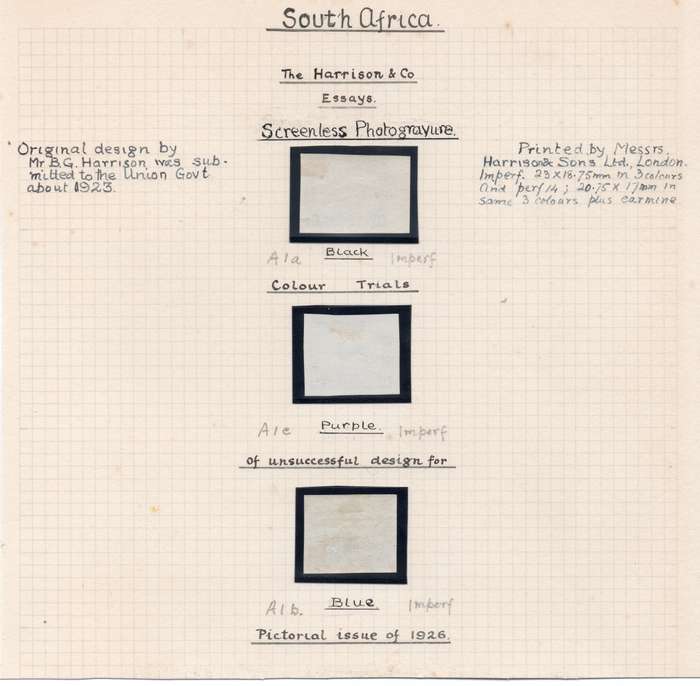 South Africa.
The Harrison & Co
Essays.
Screenless Photogravure.
Original design by
Mr B.G. Harrison was sub-
mitted to the Union Govt
about 1923.
Printed by Messrs.
Harrison & Sons Ltd., London.
Imperf. 23 X 18.75mm in 3 colours
and perf 14; 20.75 X 17mm in
same 3 colours plus carmine
A1a Black Imperf
Colour Trials
A1c Purple. Imperf
Of unsuccessful design for
A1b. Blue. Imperf
Pictorial issue of 1926.